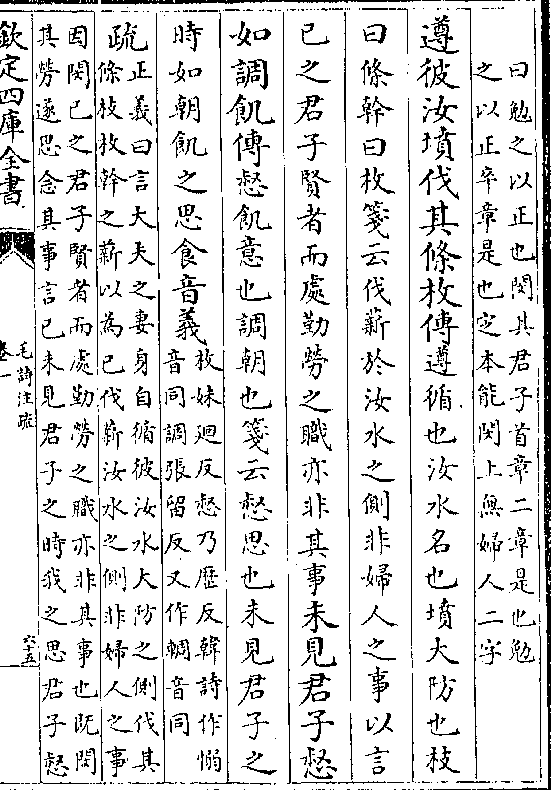 曰勉之以正也閔其君子首章二章是也勉
之以正卒章是也定本能閔上無婦人二字
遵彼汝墳伐其條枚傳遵循也汝水名也墳大防也枝
曰條幹曰枚箋云伐薪於汝水之側非婦人之事以言
已之君子賢者而處勤勞之職亦非其事未見君子惄
如調飢傳惄飢意也調朝也箋云惄思也未見君子之
時如朝飢之思食音義
枚妹迴反惄乃歴反韓詩作愵
音同調張留反又作輖音同
疏
正義曰言大夫之妻身自循彼汝水大防之側伐其
條枝枚幹之薪以為已伐薪汝水之側非婦人之事
因閔已之君子賢者而處勤勞之職亦非其事也既閔
其勞遂思念其事言已未見君子之時我之思君子惄
欽定四庫全書
毛詩注疏
卷一
六十五